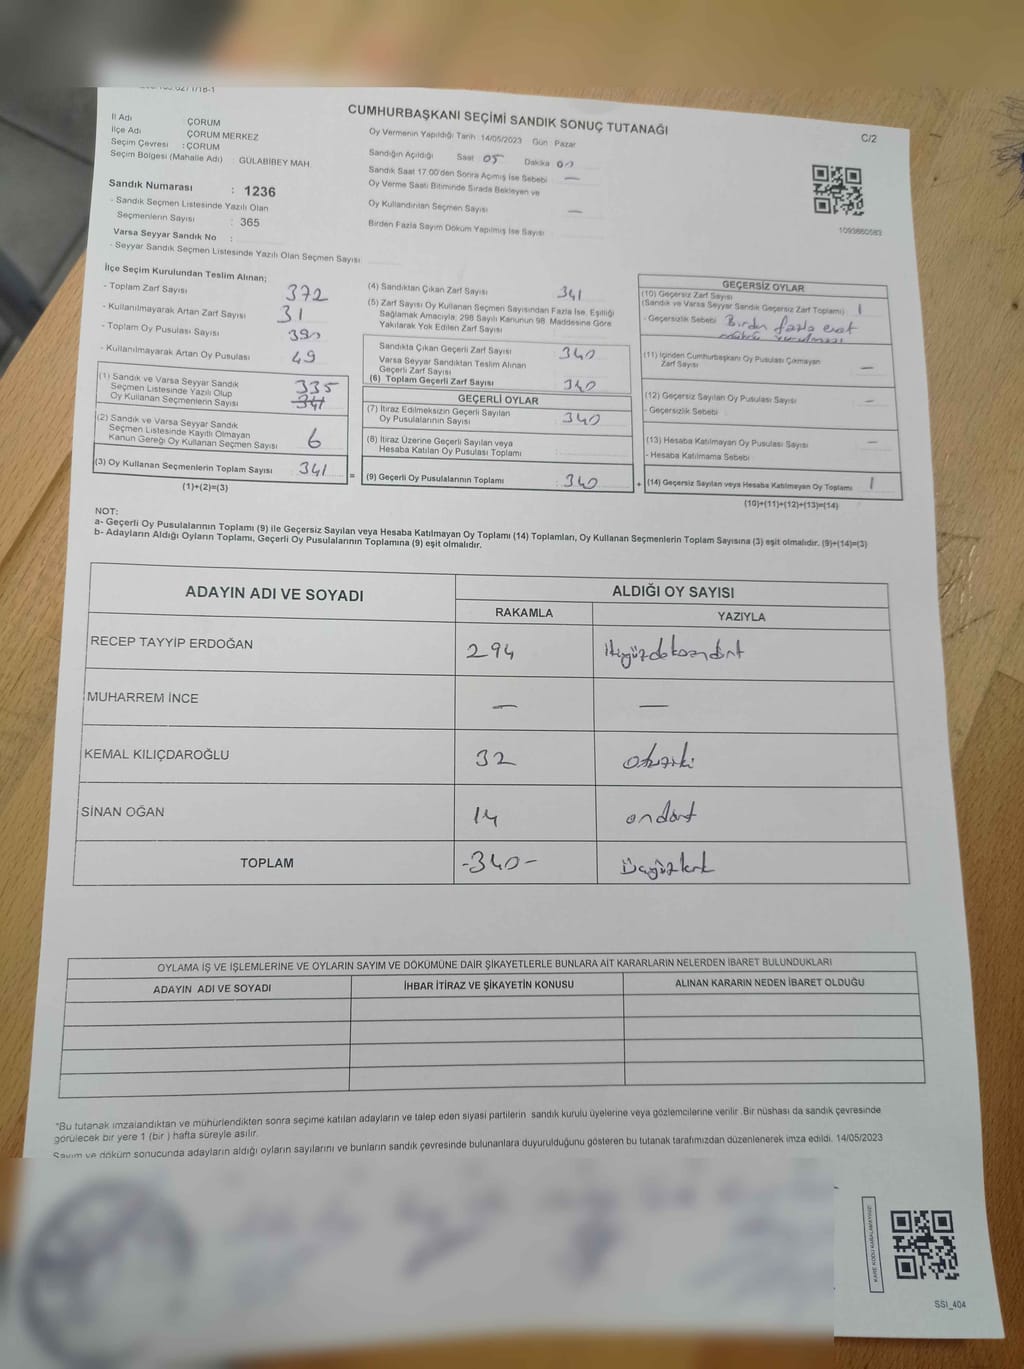 CUMHURBAŞKANI SEÇİMİ SANDIK SONUÇ TUTANAĞI
C/2
İl Adı ÇORUM
İlçe Adı ÇORUM MERKEZ
Seçim Çevresi : ÇORUM
Seçim Bölgesi (Mahalle Adı) : GÜLABİBEY MAH.
Sandık Numarası : 1236
- Sandık Seçmen Listesinde Yazılı Olan
Seçmenlerin Sayısı : 365
Varsa Seyyar Sandık No :
- Seyyar Sandık Seçmen Listesinde Yazılı Olan Seçmen Sayısı
Oy Vermenin Yapıldığı Tarih 14/05/2023 Gün : Pazar
Sandığın Açıldığı Saat 05 Dakika
Sandık Saat 17.00'den Sonra Açmış İse Sebebi —
Oy Verme Saati Bitiminde Sırada Bekleyen ve
Oy Kullandırılan Seçmen Sayısı —
Birden Fazla Sayım Döküm Yapılmış İse Sayısı
1093860583
İlçe Seçim Kurulundan Teslim Alınan;
- Toplam Zarf Sayısı 372
- Kullanılmayarak Artan Zarf Sayısı 31
- Toplam Oy Pusulası Sayısı 390
- Kullanılmayarak Artan Oy Pusulası 49
(1) Sandık ve Varsa Seyyar Sandık 335
Seçmen Listesinde Yazılı Olup
Oy Kullanan Seçmenlerin Sayısı 341
(2) Sandık ve Varsa Seyyar Sandık
Seçmen Listesinde Kayıtlı Olmayan
Kanun Gereği Oy Kullanan Seçmen Sayısı 6
(3) Oy Kullanan Seçmenlerin Toplam Sayısı 341
(1)+(2)=(3)
(4) Sandıktan Çıkan Zarf Sayısı 341
(5) Zarf Sayısı Oy Kullanan Seçmen Sayısından Fazla İse, Eşitliği
Sağlamak Amacıyla; 298 Sayılı Kanunun 98. Maddesine Göre
Yakılarak Yok Edilen Zarf Sayısı
Sandıkta Çıkan Geçerli Zarf Sayısı 340
Varsa Seyyar Sandıktan Teslim Alınan
Geçerli Zarf Sayısı
(6) Toplam Geçerli Zarf Sayısı 340
GEÇERLİ OYLAR
(7) İtiraz Edilmeksizin Geçerli Sayılan
Oy Pusulalarının Sayısı 340
(8) İtiraz Üzerine Geçerli Sayılan veya
Hesaba Katılan Oy Pusulası Toplamı
= (9) Geçerli Oy Pusulalarının Toplamı 340
GEÇERSİZ OYLAR
(10) Geçersiz Zarf Sayısı
(Sandık ve Varsa Seyyar Sandık Geçersiz Zarf Toplamı) 1
- Geçersizlik Sebebi Birden fazla evet
(11) İçinden Cumhurbaşkanı Oy Pusulası Çıkmayan
Zarf Sayısı —
(12) Geçersiz Sayılan Oy Pusulası Sayısı —
- Geçersizlik Sebebi
(13) Hesaba Katılmayan Oy Pusulası Sayısı —
- Hesaba Katılmama Sebebi
+ (14) Geçersiz Sayılan veya Hesaba Katılmayan Oy Toplamı 1
(10)+(11)+(12)+(13)=(14)
NOT:
a- Geçerli Oy Pusulalarının Toplamı (9) ile Geçersiz Sayılan veya Hesaba Katılmayan Oy Toplamı (14) Toplamları, Oy Kullanan Seçmenlerin Toplam Sayısına (3) eşit olmalıdır. (9)+(14)=(3)
b- Adayların Aldığı Oyların Toplamı, Geçerli Oy Pusulalarının Toplamına (9) eşit olmalıdır.
ADAYIN ADI VE SOYADI ALDIĞI OY SAYISI
RAKAMLA YAZIYLA
RECEP TAYYİP ERDOĞAN 294 ikiyüzdoksandört
MUHARREM İNCE — —
KEMAL KILIÇDAROĞLU 32 otuziki
SİNAN OĞAN 14 ondört
TOPLAM -340- Üçyüzkırk
OYLAMA İŞ VE İŞLEMLERİNE VE OYLARIN SAYIM VE DÖKÜMÜNE DAİR ŞİKAYETLERLE BUNLARA AİT KARARLARIN NELERDEN İBARET BULUNDUKLARI
ADAYIN ADI VE SOYADI İHBAR İTİRAZ VE ŞİKAYETİN KONUSU ALINAN KARARIN NEDEN İBARET OLDUĞU
*Bu tutanak imzalandıktan ve mühürlendikten sonra seçime katılan adayların ve talep eden siyasi partilerin sandık kurulu üyelerine veya gözlemcilerine verilir .Bir nüshası da sandık çevresinde
görülecek bir yere 1 (bir ) hafta süreyle asılır.
Sayım ve döküm sonucunda adayların aldığı oyların sayılarını ve bunların sandık çevresinde bulunanlara duyurulduğunu gösteren bu tutanak tarafımızdan düzenlenerek imza edildi. 14/05/2023
KARE KODU KARALAMAYINIZ!
SSI_404